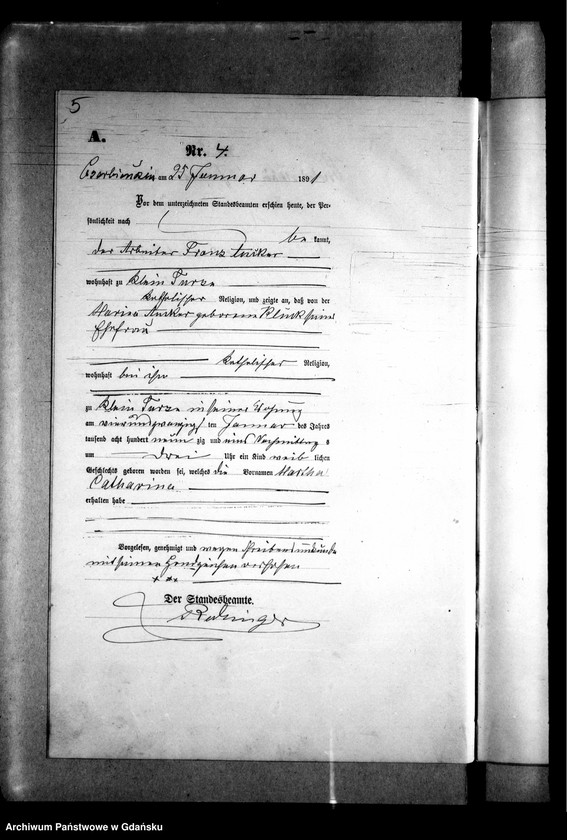 5
A.
Nr. 4.
am 25 Januar 1891
Vor dem unterzeichneten Standesbeamten erschien heute, der Per-
sönlichkeit nach
be kannt,
der Arbeiter Franz
wohnhaft zu Klein Turze
katholischer Religion, und zeigte an, daß von der
Marie geborene Kluck seine
Ehefrau
katholischer Religion,
wohnhaft bei ihm
zu Klein Turze in seiner Wohnung
am vierundzwanzig ten Januar des Jahres
tausend acht hundert neun zig und eins Nachmittag s
um drei Uhr ein Kind weib lichen
Geschlechts geboren worden sei, welches die Vornamen Martha
Catharina
erhalten habe
Vorgelesen, genehmigt und wegen Schreibensunkunde
mit seinem Handzeichen versehen
+ + +
Der Standesbeamte.
Archiwum Państwowe w Gdańsku